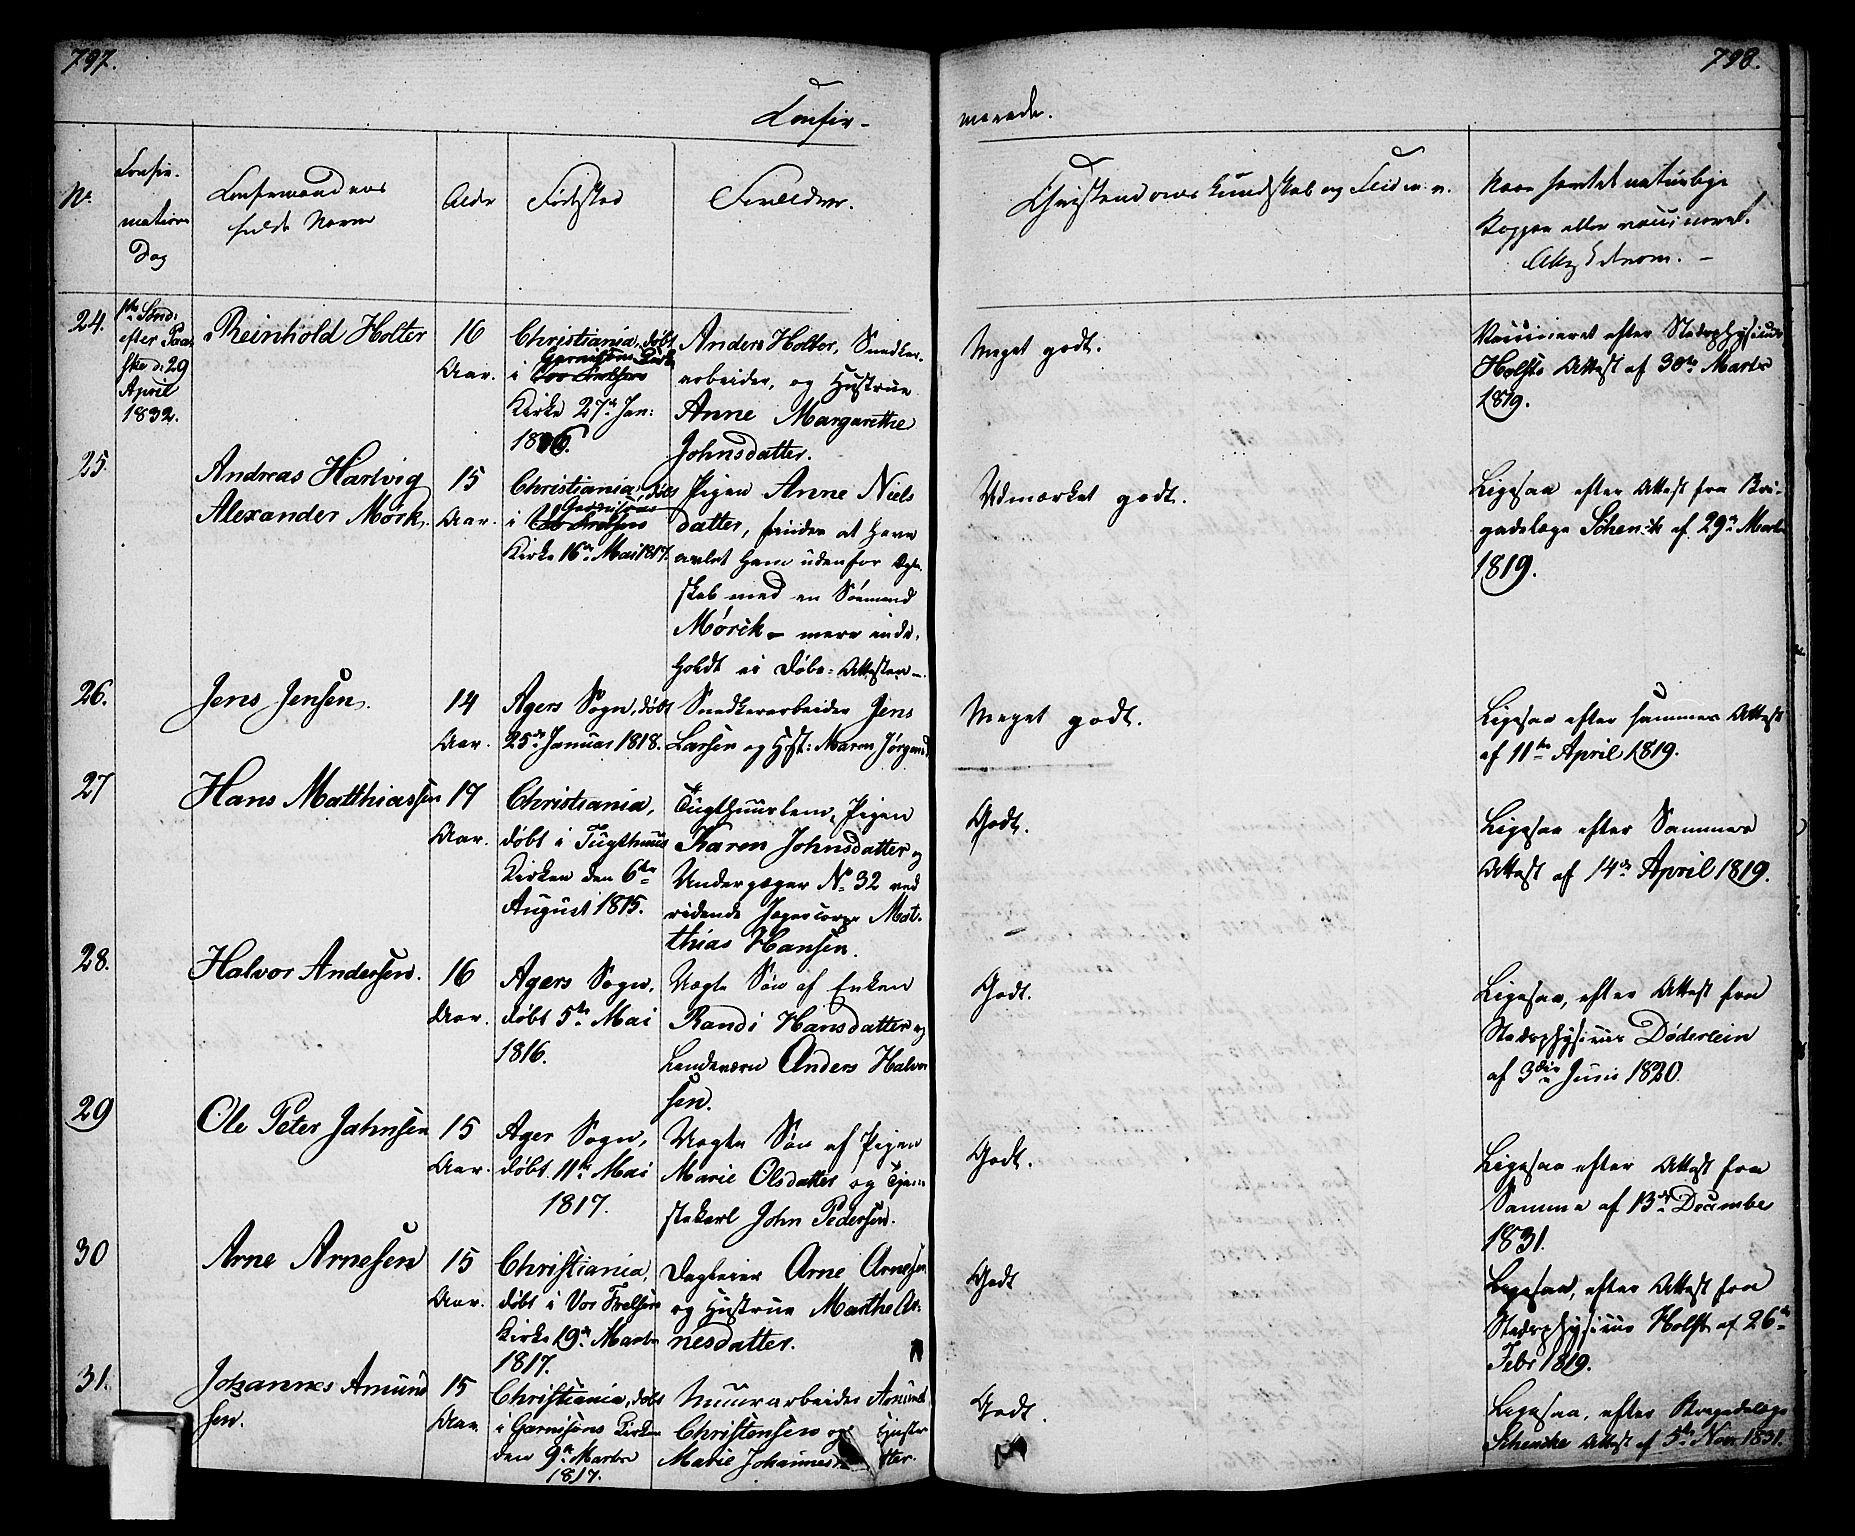 797.
798.
Confir-
merede.
No.
Confir-
mations
Dag
Confirmandens
fulde Navn
Alder
Fødested
Forældrene.
Christendoms Kundskab og Flid m. v.
Naar havt de naturlige
Kopper eller vaccineret.
24.
1ste Sønd:
efter Paa-
ske d: 29
April
1832.
Reinhold Holter
16
Aar.
Christiania, døbt
Garnisons Kirk
i Vor Frelsers
Kirke 27de Jan:
1816.
Anders Holter, Snedker-
arbeider, og Hustrue
Anne Margarethe
Johnsdatter.
Meget godt.
Vaccineret efter Stadsphysicus
Holsts Attest af 30te Marts
1819.
25.
Andreas Hartvig
Alexander Mørk.
15
Aar.
Christiania, døbt
Garnisons
i Vor Frelsers
Kirke 16de Mai 1817.
Pigen Anne Niels
datter, at have
avlet ham udenfor Ægte-
skab med en Sømand
Mørck - mere inde-
holdt ei Døbe-Attesten -
Udmærket godt.
Ligesaa efter Attest fra Bri-
gadelæge Schenck af 29de Marts
1819.
26.
Jens Jensen.
14
Aar.
Agers Sogn, døbt
25de Januar 1818.
Snedkerarbeider Jens
Larsen og Hust: Maren Jørgensd.
Meget godt.
Ligesaa efter sammes Attest
af 11te April 1819.
27
Hans Matthiassen
17
Aar.
Christiania,
døbt i Tugthuus
Kirken den 6te
August 1815.
Tugthuuslem, Pigen
Karen Johnsdatter og
Underjæger No 32 ved
ridende Jægercorps Mat-
thias Hansen.
Godt.
Ligesaa efter Sammes
Attest af 14de April 1819.
28.
Halvor Andersen.
16
Aar.
Agers Sogn,
døbt 5te Mai
1816.
Uægte Søn af Enken
Randi Hansdatter og
Landeværn Anders Halvor
sen.
Godt.
Ligesaa, efter Attest fra
Stadsphysicus Døderlein
af 3die Juni 1820.
29
Ole Peter Jahnsen
15
Aar.
Ager Sogn,
døbt 11te Mai
1817.
Uægte Søn af Pigen
Marie Olsdatter og Tjene-
stekarl John Pedersen.
Godt.
Ligesaa efter Attest fra
Samme af 13de December
1831.
30
Arne Arnesen
15
Aar.
Christiania,
døbt i Vor Frelsers
Kirke 19de Marts
1817.
Dagleier Arne Arnesen
og Hustrue Marthe Ar-
nesdatter.
Godt
Ligesaa, efter Attest fra
Stadsphysicus Holst af 26de
Febr 1819.
31.
Johannes Amund
sen.
15
Aar.
Christiania, døbt
i Garnisons Kirken
den 9de Marts
1817.
Muurarbeider Amund
Christensen og Hustr
Marie Johannes tter.
Godt.
Ligesaa, efter Brigadelæge
Schencke Attest af 5te Nov 1831.